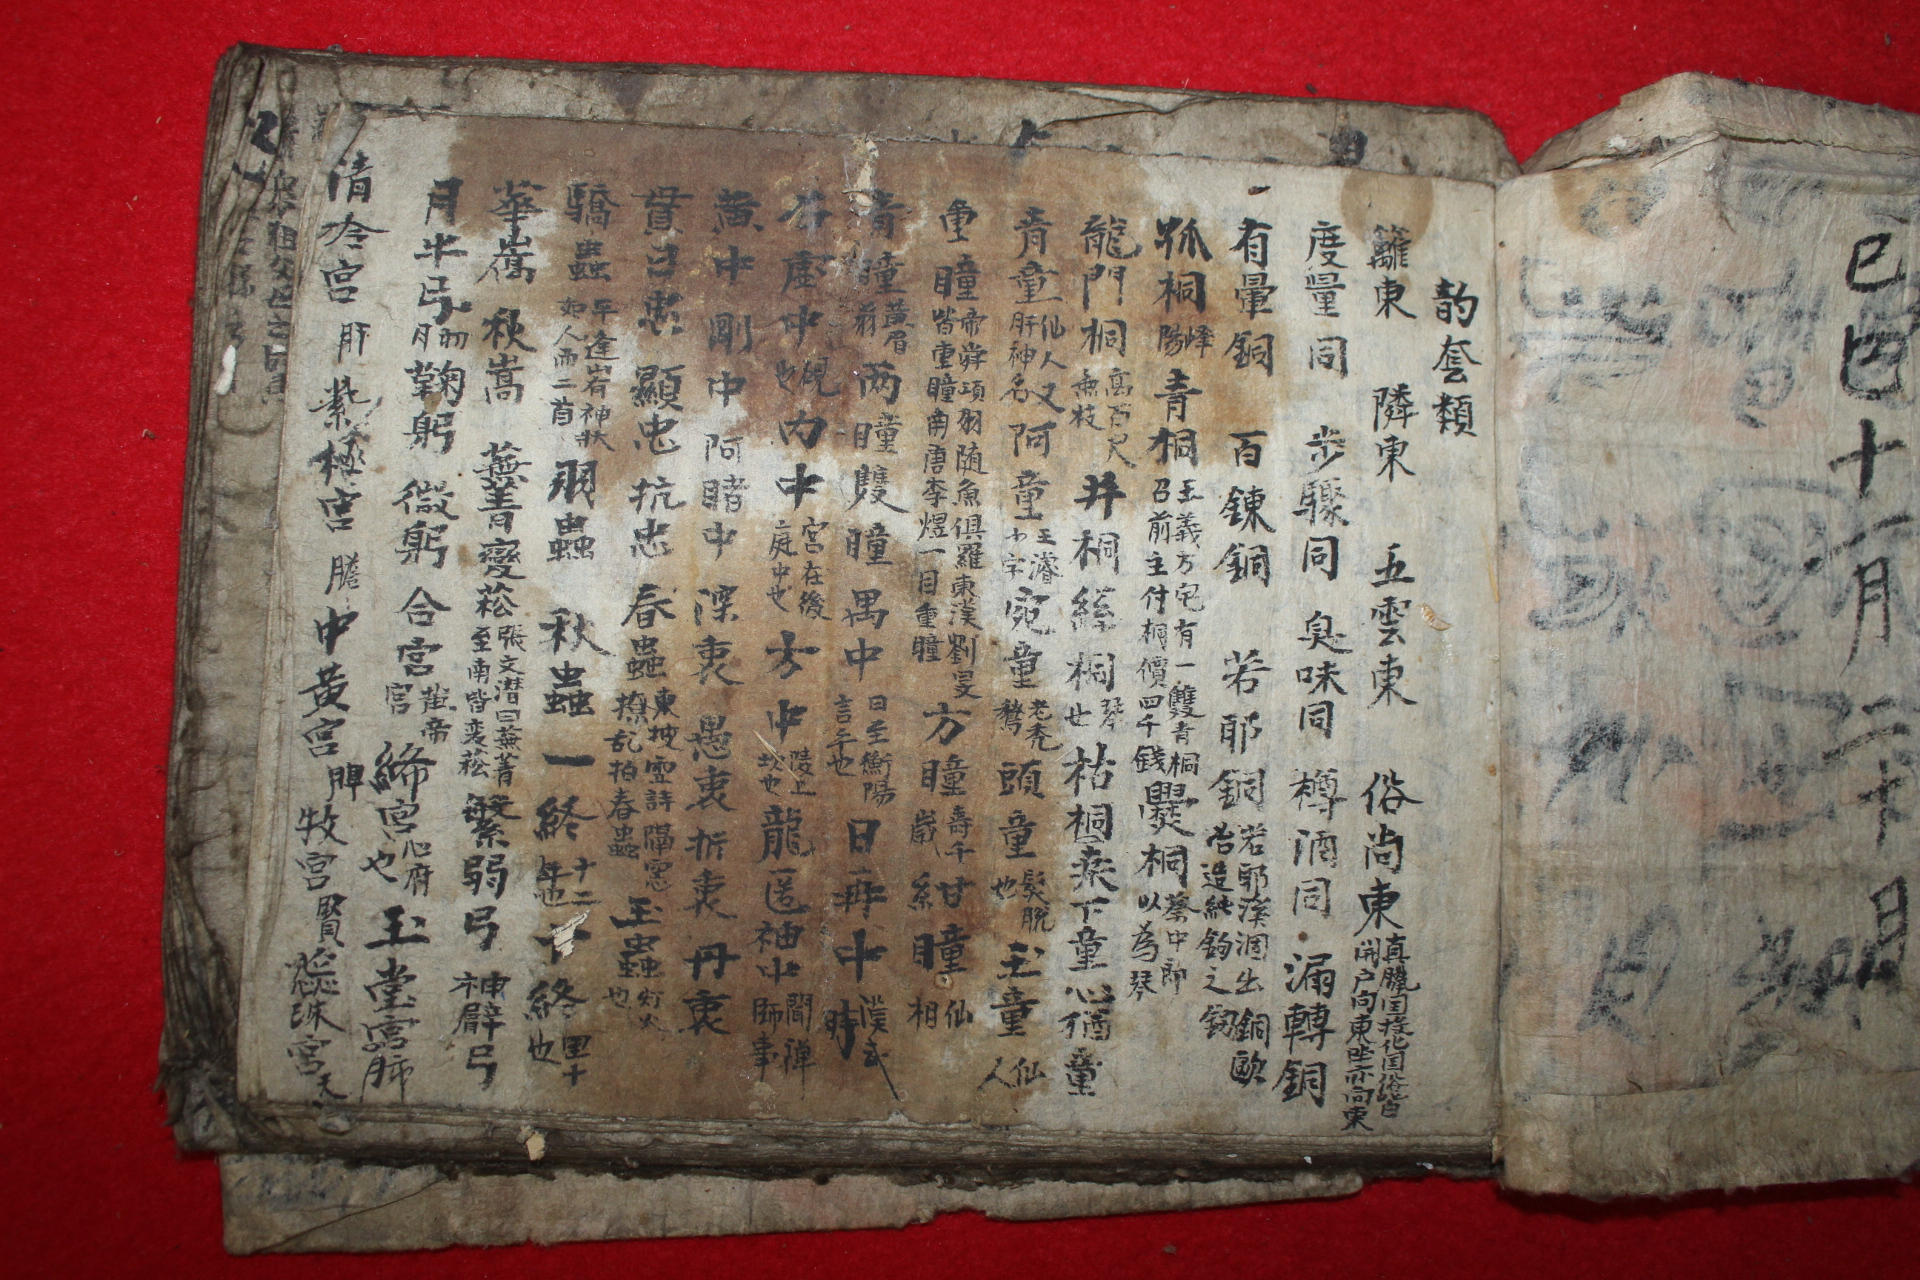 己巳十一月二十日
韵套類
籬東 隣東 五雲東 俗尚東 真臘国授化国俗皆開户向東坐亦向東
度量同 步驟同 臭味同 樽酒同 漏轉銅
有暈銅 百鍊銅 若耶銅 若耶溪涸出銅歐冶造純鈎之釼
孤桐 嶧陽 青桐 王義方宅有一雙青桐召前主付桐價四千錢 爨桐 蔡中郎以為琴
龍門桐 高百尺無枝 井桐 絲桐 琴也 枯桐 桑下童 心猶童
青童 仙人又肝神名 阿童 王濬小字 宛童 老禿鶖 頭童 髮脫也 玉童 仙人
重瞳 帝舜項羽随魚俱羅東漢劉旻皆重瞳南唐李煜一目重瞳 方瞳 壽千歲 紺瞳 仙相
青瞳 黄眉翁 两瞳 雙瞳 禺中 日至衡陽言平也 日再中 漢武時
谷虛中 視也 内中 宮在後庭中也 方中 陵上坎也 龍匿袖中 聞禅師事
黃中 剛中 阿睹中 深衷 愚衷 折衷 丹衷
貫日忠 顯忠 抗忠 春蟲 東坡雪詩隔窓撩乱拍春蟲 玉蟲 灯火也
驕蟲 平逢山有神狀如人而二首 羽蟲 秋蟲 一終 十二年也 下終 里十也
華嵩 秋嵩 蕪菁變菘 張文潜曰蕪菁至南皆変菘 繁弱弓 神臂弓
月半弓 初月 鞠躬 微躬 合宮 黄帝宮 絳宮 心府也 玉堂宮 肺
清冷宮 肝 紫極宮 膽 中黃宮 脾 牧宮 賢 蕊珠宮 天